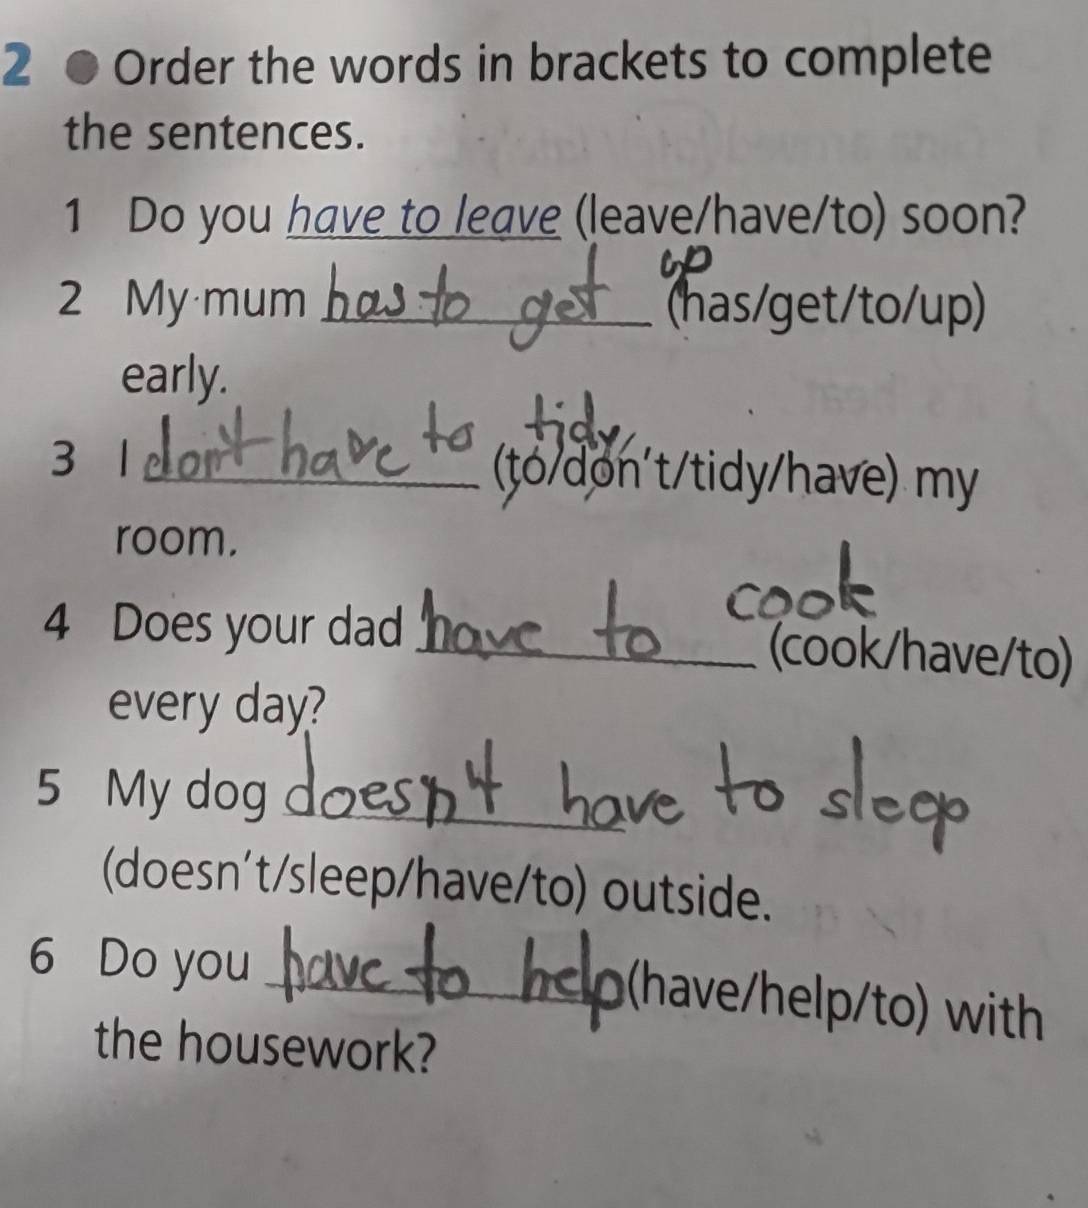 2 ● Order the words in brackets to complete
the sentences.
1 Do you have to leave (leave/have/to) soon?
2 My mum has to get up (has/get/to/up)
early.
3 I don't have to tidy (to/don't/tidy/have) my
room.
4 Does your dad have to cook (cook/have/to)
every day?
5 My dog doesn't have to sleep
(doesn't/sleep/have/to) outside.
6 Do you have to help (have/help/to) with
the housework?